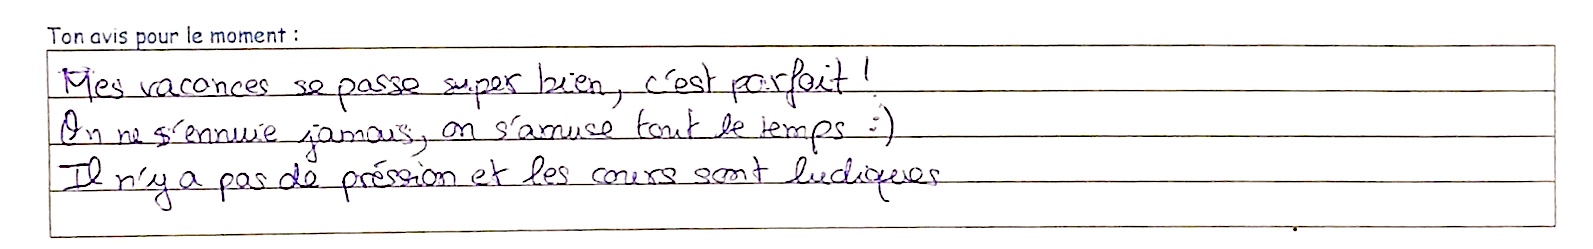 Ton avis pour le moment :
Mes vacances se passe super bien, c'est parfait !
On ne s'ennuie jamais, on s'amuse tout le temps :)
Il n'y a pas de préssion et les cours sont ludiques